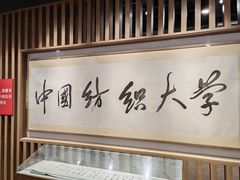 中國纺织大学